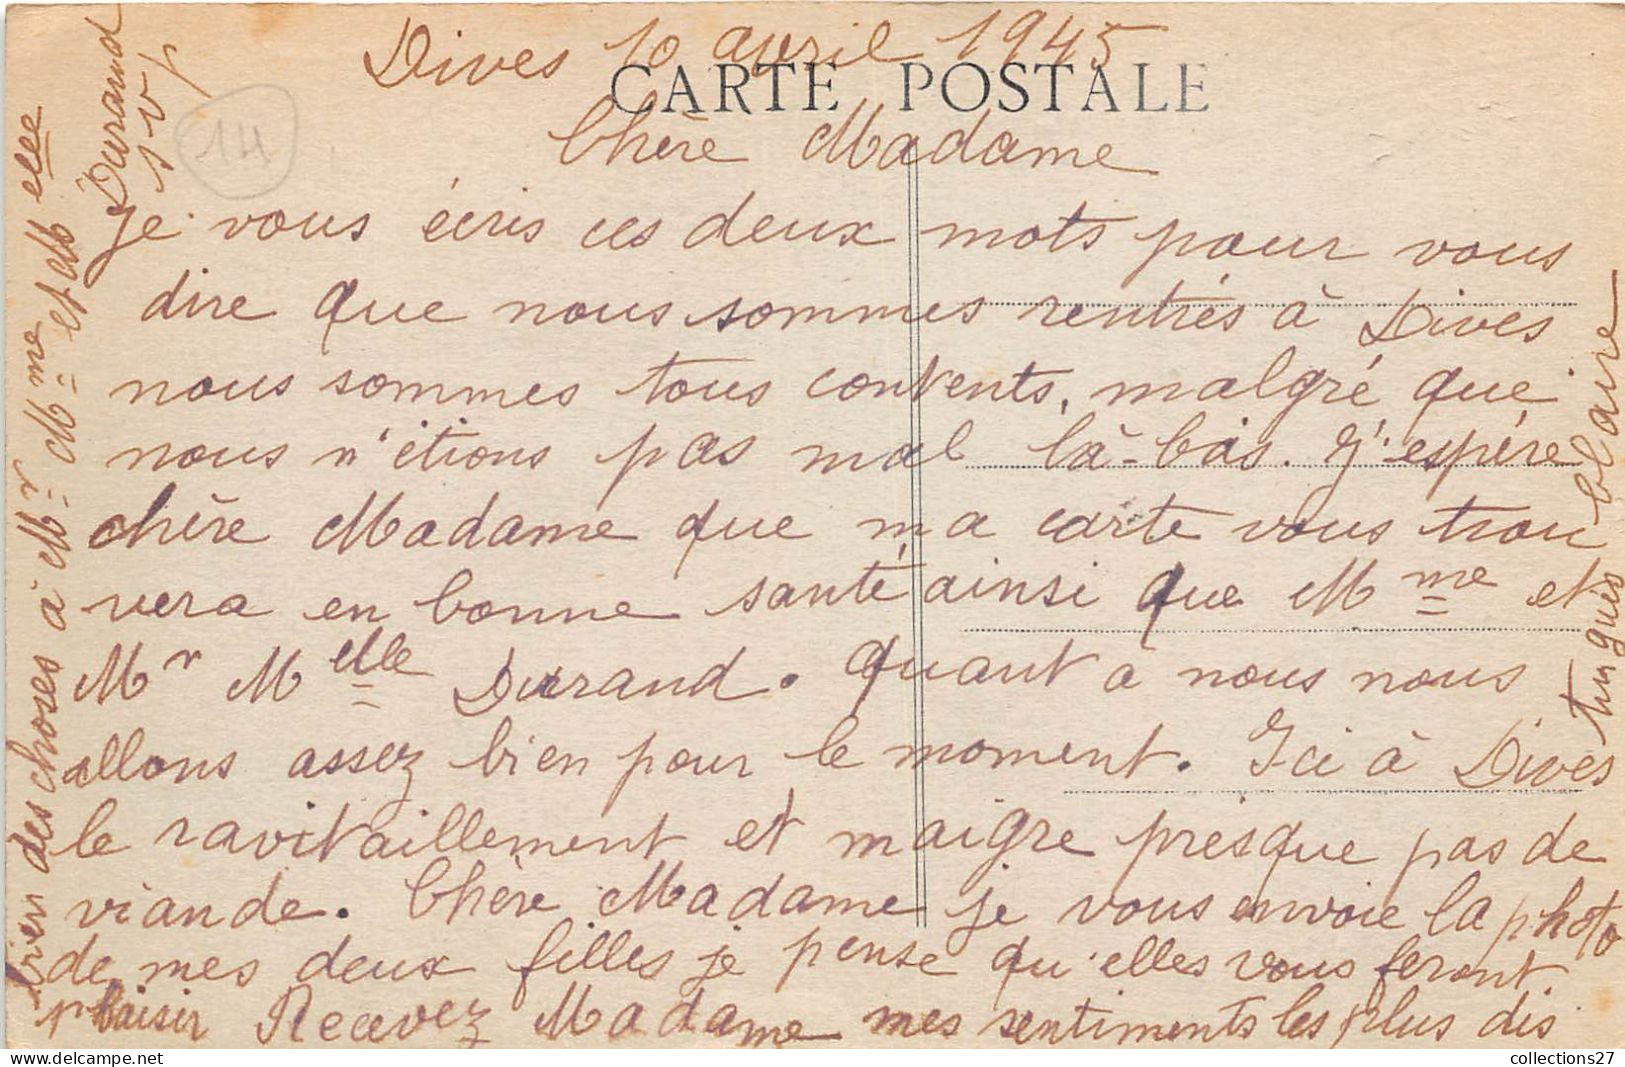 Dives 10 avril 1945
CARTE POSTALE
14
Chère Madame
Je vous écris ces deux mots pour vous
dire que nous sommes rentrés à Dives
nous sommes tous contents, malgré que
nous n'étions pas mal là-bas. J'espère
chère Madame que ma carte vous trou
vera en bonne santé ainsi que Mme et
Mr Melle Durand. Quant à nous nous
allons assez bien pour le moment. Ici à Dives
le ravitaillement et maigre presque pas de
viande. Chère Madame je vous envoie la photo
de mes deux filles je pense qu'elles vous feront
plaisir Recevez Madame mes sentiments les plus dis
tingués Claire
bien des choses à Mr Mme et Melle
Durand
svp
collections27